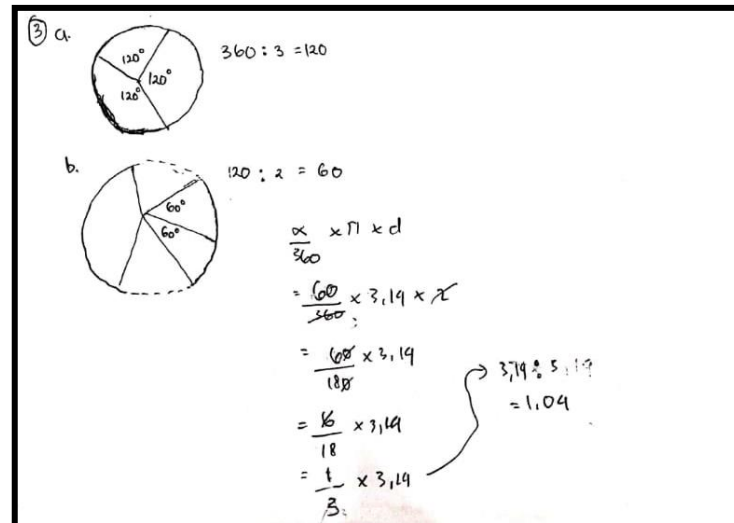 3 a.
120°
120°
120°
360 : 3 = 120
b.
60°
60°
120 : 2 = 60
α/360 × π × d
= 60/360 × 3,14 × 2
= 60/180 × 3,14
= 6/18 × 3,14
= 1/3 × 3,14
= 1,04